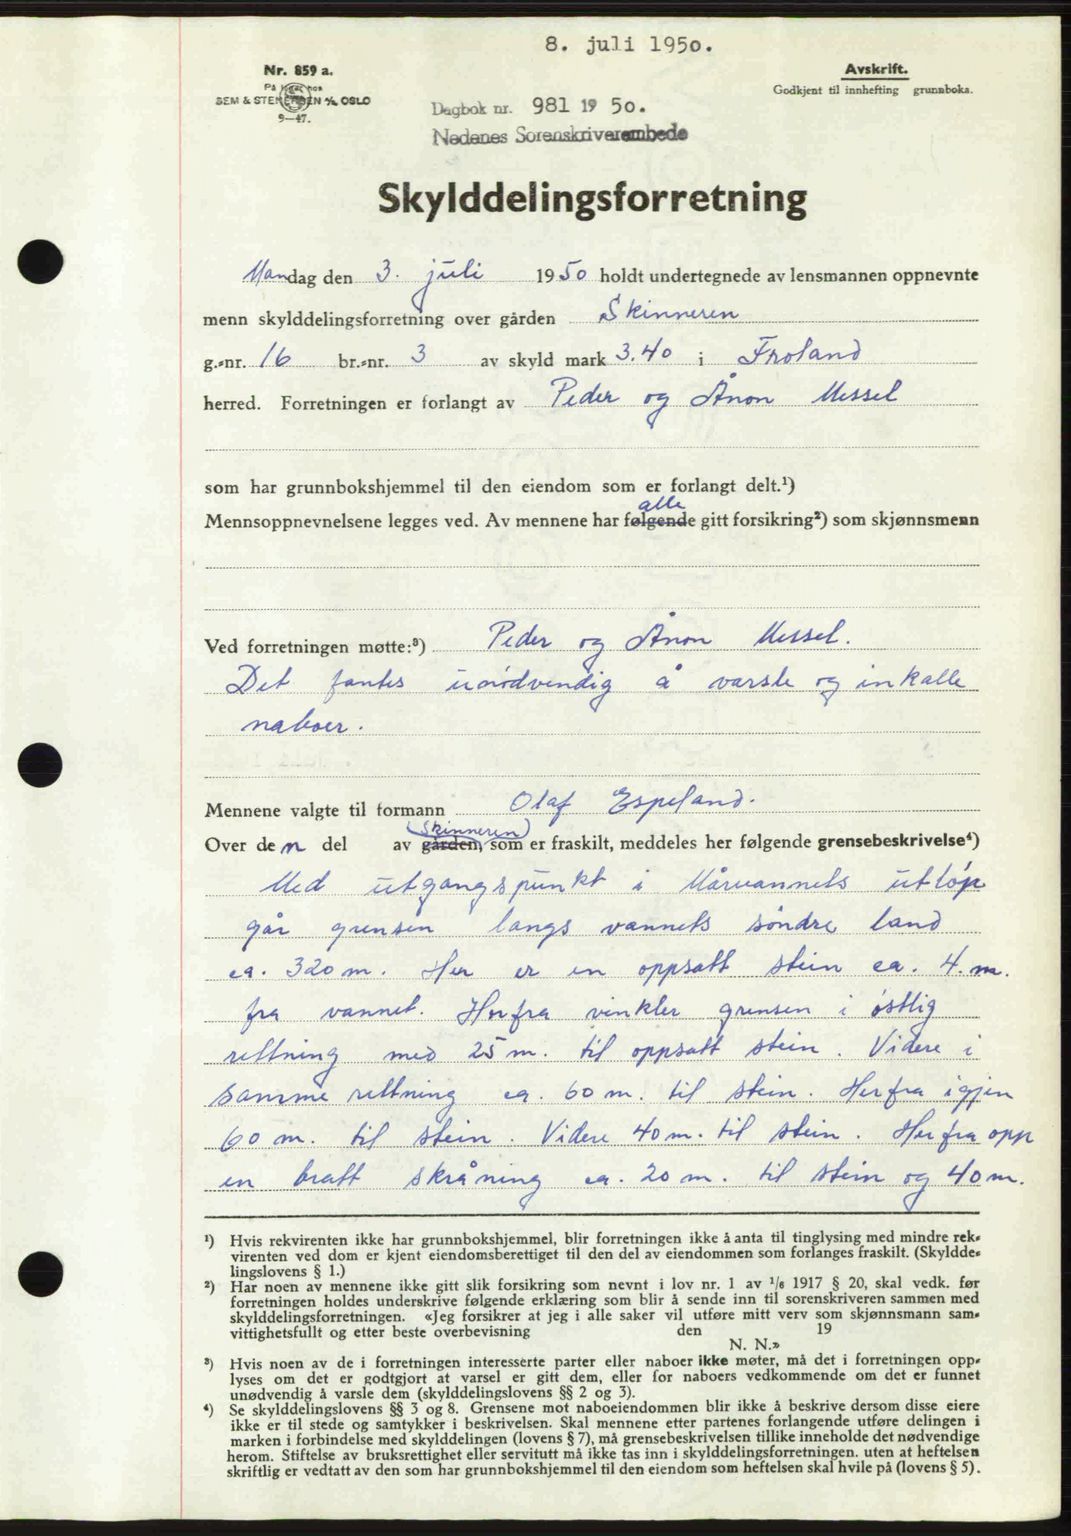 8. juli 1950.
Nr. 859 a.
På lager hos
SEM & STENERSEN A/S OSLO
9—47.
Avskrift.
Godkjent til innhefting grunnboka.
Dagbok nr. 981 19 50.
Nedenes Sorenskriverembede
Skylddelingsforretning
Mandag den 3. juli 1950 holdt undertegnede av lensmannen oppnevnte
menn skylddelingsforretning over gården Skinneren
g.-nr. 16 br.-nr. 3 av skyld mark 3.40 i Froland
herred. Forretningen er forlangt av Peder og Ånon Messel
som har grunnbokshjemmel til den eiendom som er forlangt delt.¹)
alle
Mennsoppnevnelsene legges ved. Av mennene har følgende gitt forsikring²) som skjønnsmenn
Ved forretningen møtte:³) Peder og Ånon Messel.
Det fantes unødvendig å varsle og inkalle
naboer.
Mennene valgte til formann Olaf Espeland.
(Skinneren)
Over den del av gården, som er fraskilt, meddeles her følgende grensebeskrivelse⁴)
Med utgangspunkt i Mårvannets utløp
går grensen langs vannets søndre land
ca. 320 m. Her er en oppsatt stein ca. 4. m.
fra vannet. Herfra vinkler grensen i østlig
rettning med 25 m. til oppsatt stein. Videre i
samme rettning ca. 60 m. til stein. Herfra igjen
60 m. til stein. Videre 40 m. til stein. Herfra opp
en bratt skråning ca. 20 m. til stein og 40 m.
¹) Hvis rekvirenten ikke har grunnbokshjemmel, blir forretningen ikke å anta til tinglysing med mindre rek-
virenten ved dom er kjent eiendomsberettiget til den del av eiendommen som forlanges fraskilt. (Skyldde-
lingslovens § 1.)
²) Har noen av mennene ikke gitt slik forsikring som nevnt i lov nr. 1 av 1/6 1917 § 20, skal vedk. før
forretningen holdes underskrive følgende erklæring som blir å sende inn til sorenskriveren sammen med
skylddelingsforretningen. «Jeg forsikrer at jeg i alle saker vil utføre mitt verv som skjønnsmann sam-
vittighetsfullt og etter beste overbevisning den 19
N. N.»
³) Hvis noen av de i forretningen interesserte parter eller naboer ikke møter, må det i forretningen opp-
lyses om det er godtgjort at varsel er gitt dem, eller for naboers vedkommende om det er funnet
unødvendig å varsle dem (skylddelingslovens §§ 2 og 3).
⁴) Se skylddelingslovens §§ 3 og 8. Grensene mot naboeiendommen blir ikke å beskrive dersom disse eiere
ikke er til stede og samtykker i beskrivelsen. Skal mennene etter partenes forlangende utføre delingen i
marken i forbindelse med skylddelingen (lovens § 7), må grensebeskrivelsen tillike inneholde det nødvendige
herom. Stiftelse av bruksrettighet eller servitutt må ikke tas inn i skylddelingsforretningen. uten at heftelsen
skriftlig er vedtatt av den som har grunnbokshjemmel til den eiendom som heftelsen skal hvile på (lovens § 5).